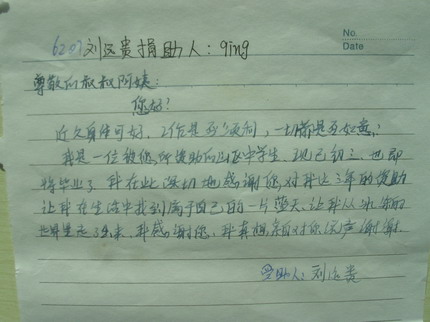 6207刘汉贵捐助人:qing
No.
Date
尊敬的叔叔阿姨:
您好!
近久身体可好,工作是否顺利,一切都是否如意?
我是一位被您所资助的 中学生,现已初三,也即
将毕业了,我在此深切地感谢您,对我这3年的资助
让我在生活中找到属于自己的一片蓝天,让我从冰冷的
世界里走了出来,我感谢您,我真想亲自对您说声谢谢
受助人:刘汉贵